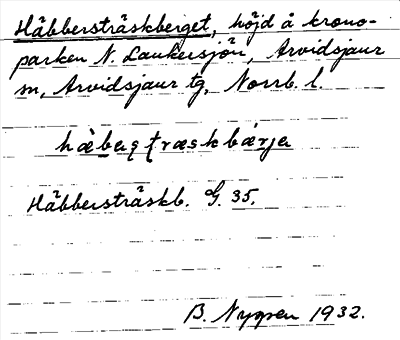 Häbbersträskberget, höjd å krono-
parken N. Laukersjön, Arvidsjaur
sn, Arvidsjaur tg, Norrb. l.
Häbbersträskb. G. 35.
B. Nygren 1932.